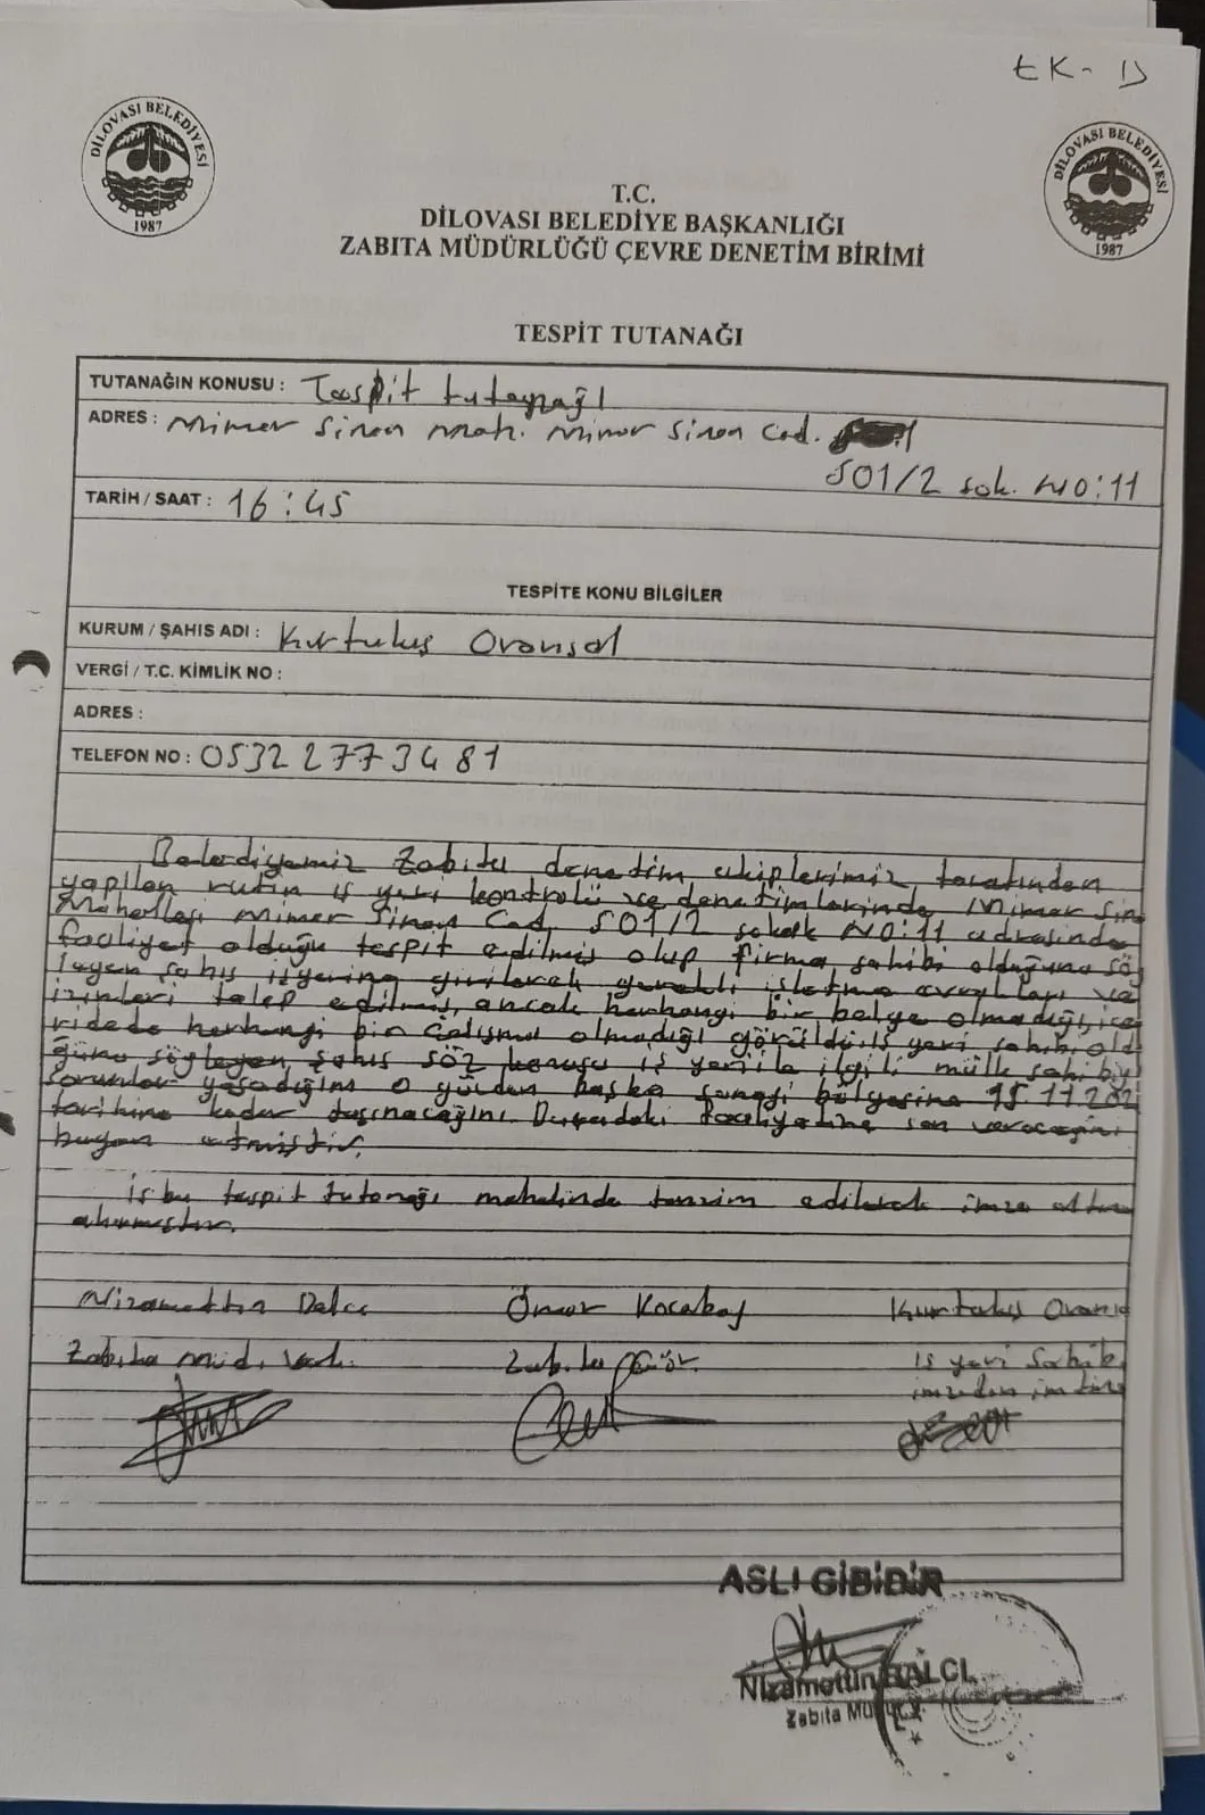 EK-D
DİLOVASI BELEDİYESİ
1987
DİLOVASI BELEDİYESİ
1987
T.C.
DİLOVASI BELEDİYE BAŞKANLIĞI
ZABITA MÜDÜRLÜĞÜ ÇEVRE DENETİM BİRİMİ
TESPİT TUTANAĞI
TUTANAĞIN KONUSU : Tespit tutanağı
ADRES : Mimar Sinan mah. Mimar Sinan Cad.
501/2 sok. NO:11
TARİH / SAAT : 16:45
TESPİTE KONU BİLGİLER
KURUM / ŞAHIS ADI : Kurtuluş Oransal
VERGİ / T.C. KİMLİK NO :
ADRES :
TELEFON NO : 0532 277 34 81
Belediyemiz Zabıta denetim ekiplerimiz tarafından
yapılan rutin iş yeri kontrolü ve denetimlerinde, Mimar Sin
Mahallesi Mimar Sinan Cad. 501/2 sokak NO:11 adresinde
faaliyet olduğu tespit edilmiş olup firma sahibi olduğunu söy
leyen şahıs işyerine girilerek gerekli işletme evrakları ve
izinleri talep edilmiş, ancak herhangi bir belge olmadığı, içe
ride de herhangi bir çalışma olmadığı görüldü. iş yeri sahibi old
ğunu söyleyen şahıs söz konusu iş yeri ile ilgili mülk sahibiyl
sorunlar yaşadığını o yüzden başka sanayi bölgesine 15.11.202
tarihine kadar taşınacağını. Buradaki faaliyetine son vereceğini
beyan etmiştir.
iş bu tespit tutanağı mahalinde tanzim edilerek imza altına
alınmıştır.
Nizamettin Balcı Ömer Kocabaş Kurtuluş Orans
Zabıta Müd. Vek. iş yeri Sahibi
imzadan imtina
ASLI GİBİDİR
Nizamettin BALCI
Zabıta Müdür V.